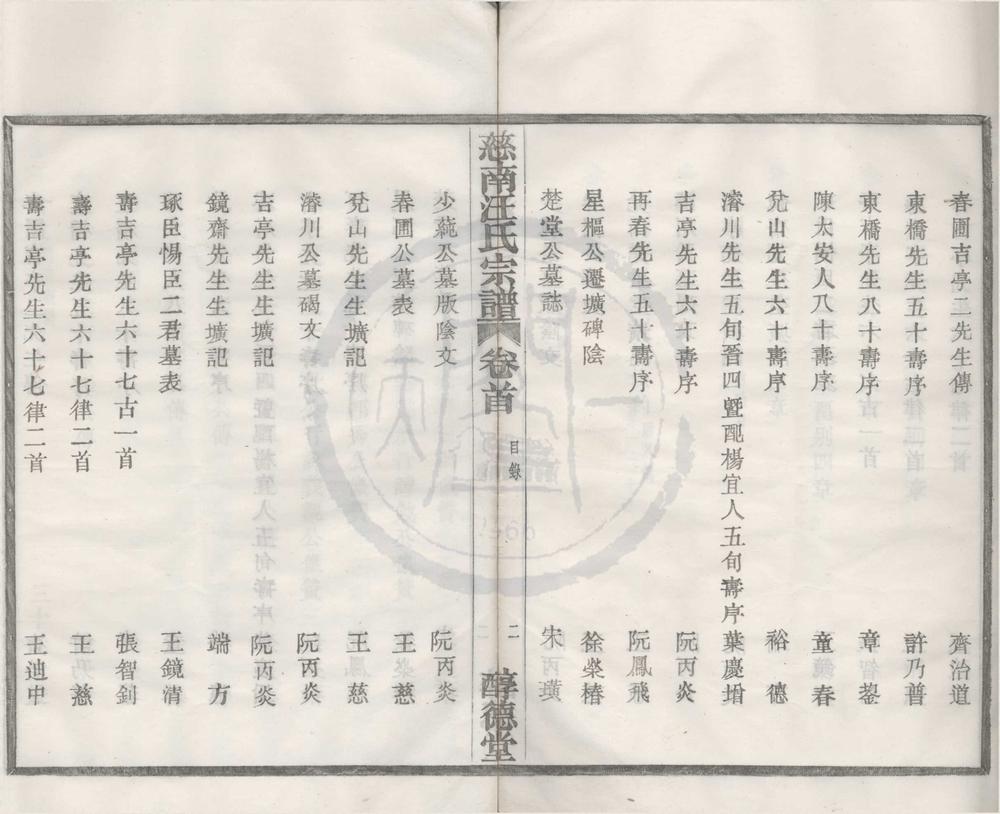 春圃吉亭二先生傳 齊治道
東橋先生五十壽序 許乃普
東橋先生八十壽序 章鋆
陳太安人八十壽序 童春
兊山先生六十壽序 裕德
濬川先生五旬晉四暨配楊宜人五旬壽序 葉慶增
吉亭先生六十壽序 阮丙炎
再春先生五十壽序 阮鳳飛
星樞公遷壙碑陰 徐榮椿
楚堂公墓誌 朱丙璜
慈南汪氏宗譜 卷首 目錄 二 醇德堂
少蒓公墓版陰文 阮丙炎
春圃公墓表 王慈
兊山先生生壙記 王慈
濬川公墓碣文 阮丙炎
吉亭先生生壙記 阮丙炎
鏡齋先生生壙記 端方
琢臣惕臣二君墓表 王鏡清
壽吉亭先生六十七古一首 張智釗
壽吉亭先生六十七律二首 王慈
壽吉亭先生六十七律二首 王迪中